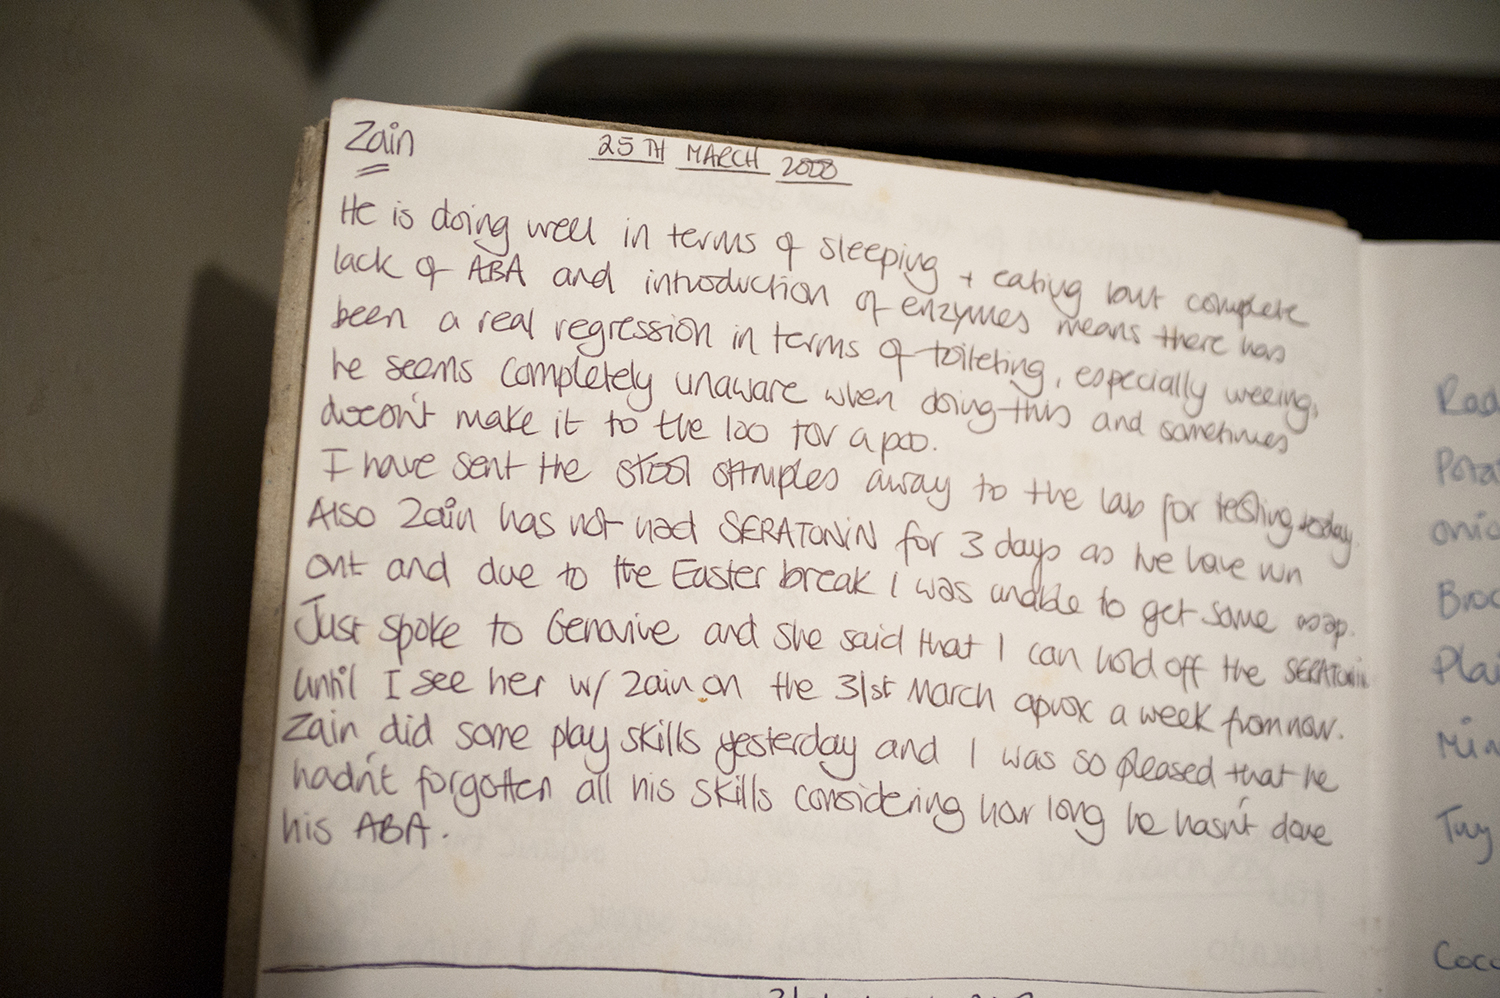 Zain
25TH MARCH 2008
He is doing well in terms of sleeping + eating but complete
lack of ABA and introduction of enzymes means there has
been a real regression in terms of toileting, especially weeing,
he seems completely unaware when doing this and sometimes
doesn't make it to the loo for a poo.
I have sent the stool samples away to the lab for testing today.
Also Zain has not had SERATONIN for 3 days as we have run
out and due to the Easter break I was unable to get some asap.
Just spoke to Genavive and she said that I can hold off the SERATONIN
until I see her w/ Zain on the 31st March aprox a week from now.
Zain did some play skills yesterday and I was so pleased that he
hadn't forgotten all his skills considering how long he hasn't done
his ABA.
Plai
Min
Coco